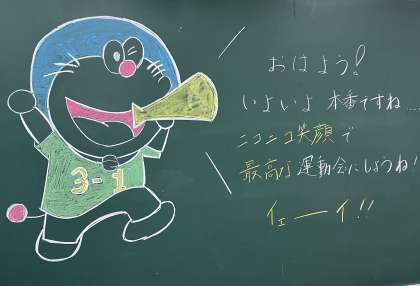 3-1
おはよう!
いよいよ本番ですね…
ニコニコ笑顔で
最高な運動会にしようね!
イェーイ!!